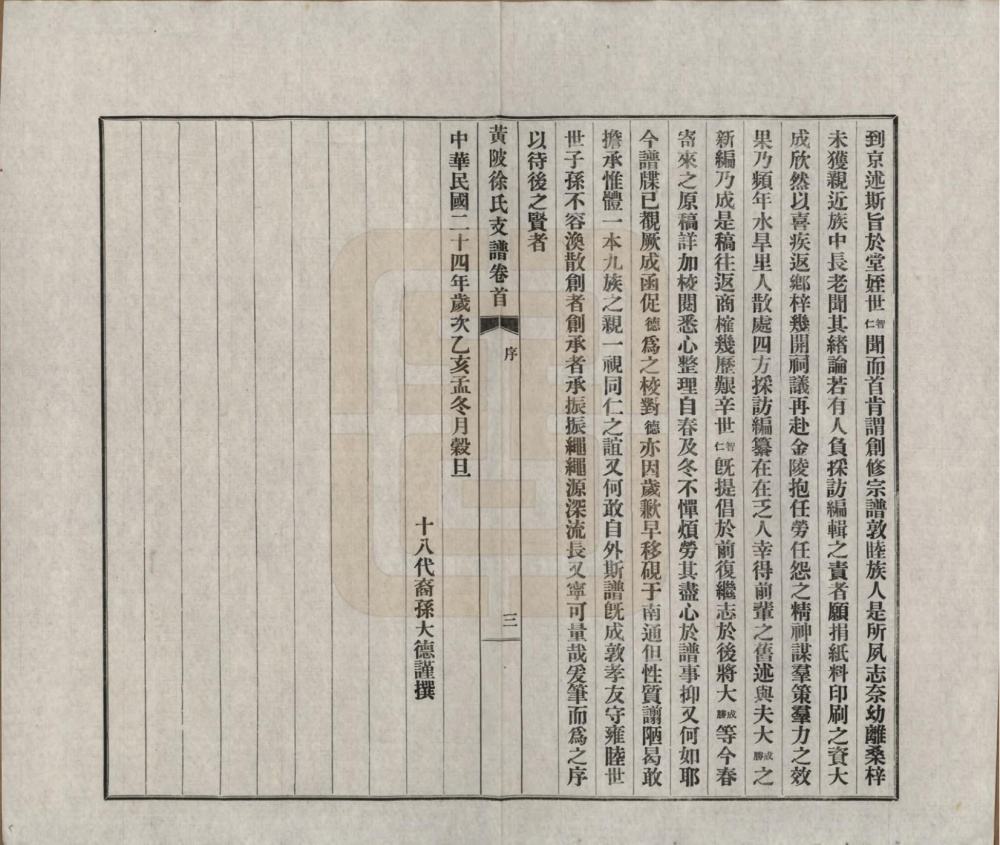 到京述斯旨於堂姪世智仁聞而首肯謂創修宗譜敦睦族人是所夙志奈幼離桑梓
未獲親近族中長老聞其緒論若有人負採訪編輯之責者願捐紙料印刷之資大
成欣然以喜疾返鄉梓幾開祠議再赴金陵抱任勞任怨之精神謀羣策羣力之效
果乃頻年水旱里人散處四方採訪編纂在在乏人幸得前輩之舊述與夫大成勝之
新編乃成是稿往返商榷幾歷艱辛世智仁旣提倡於前復繼志於後將大成勝等今春
寄來之原稿詳加校閱悉心整理自春及冬不憚煩勞其盡心於譜事抑又何如耶
今譜牒已覩厥成函促德爲之校對德亦因歲歉早移硯于南通但性質譾陋曷敢
擔承惟體一本九族之親一視同仁之誼又何敢自外斯譜旣成敦孝友守雍睦世
世子孫不容渙散創者創承者承振振繩繩源深流長又寧可量哉爰筆而爲之序
以待後之賢者
黃陂徐氏支譜卷首
序
三
中華民國二十四年歲次乙亥孟冬月穀旦
十八代裔孫大德謹撰